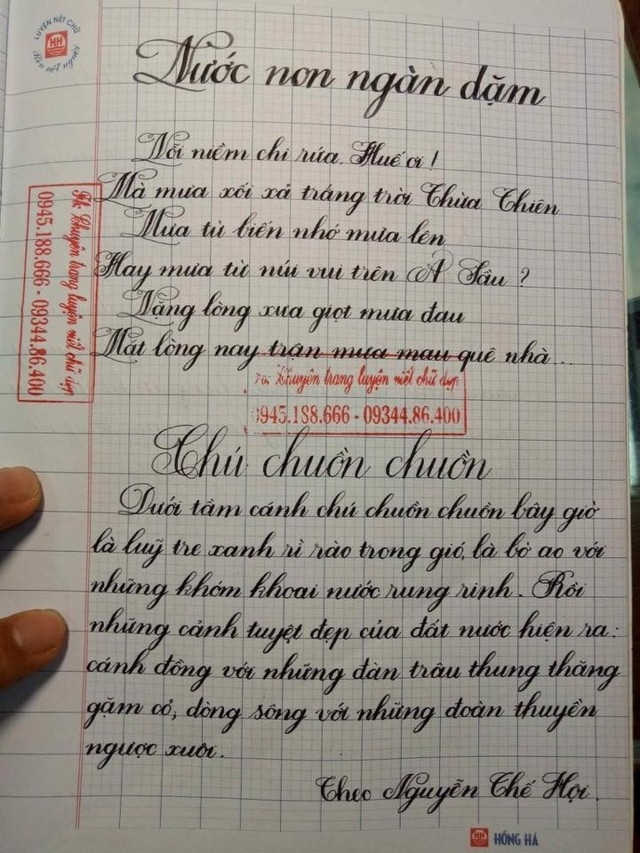 LUYỆN NÉT CHỮ
HH
Rèn nết người
Nước non ngàn dặm
Nỗi niềm chi rứa, Huế ơi!
Mà mưa xối xả trắng trời Thừa Thiên
Mưa từ biển nhớ mưa lên
Hay mưa từ núi vui trên A Sầu?
Nặng lòng xưa giọt mưa đau
Mát lòng nay trận mưa mau quê nhà...
Fb: Chuyên trang luyện viết chữ đẹp
0945.188.666 - 09344.86.400
Fb: Chuyên trang luyện viết chữ đẹp
0945.188.666 - 09344.86.400
Chú chuồn chuồn
Dưới tầm cánh chú chuồn chuồn bây giờ
là luỹ tre xanh rì rào trong gió, là bờ ao với
những khóm khoai nước rung rinh. Rồi
những cảnh tuyệt đẹp của đất nước hiện ra:
cánh đồng với những đàn trâu thung thăng
gặm cỏ; dòng sông với những đoàn thuyền
ngược xuôi.
Theo Nguyễn Thế Hội.
HH HỒNG HÀ